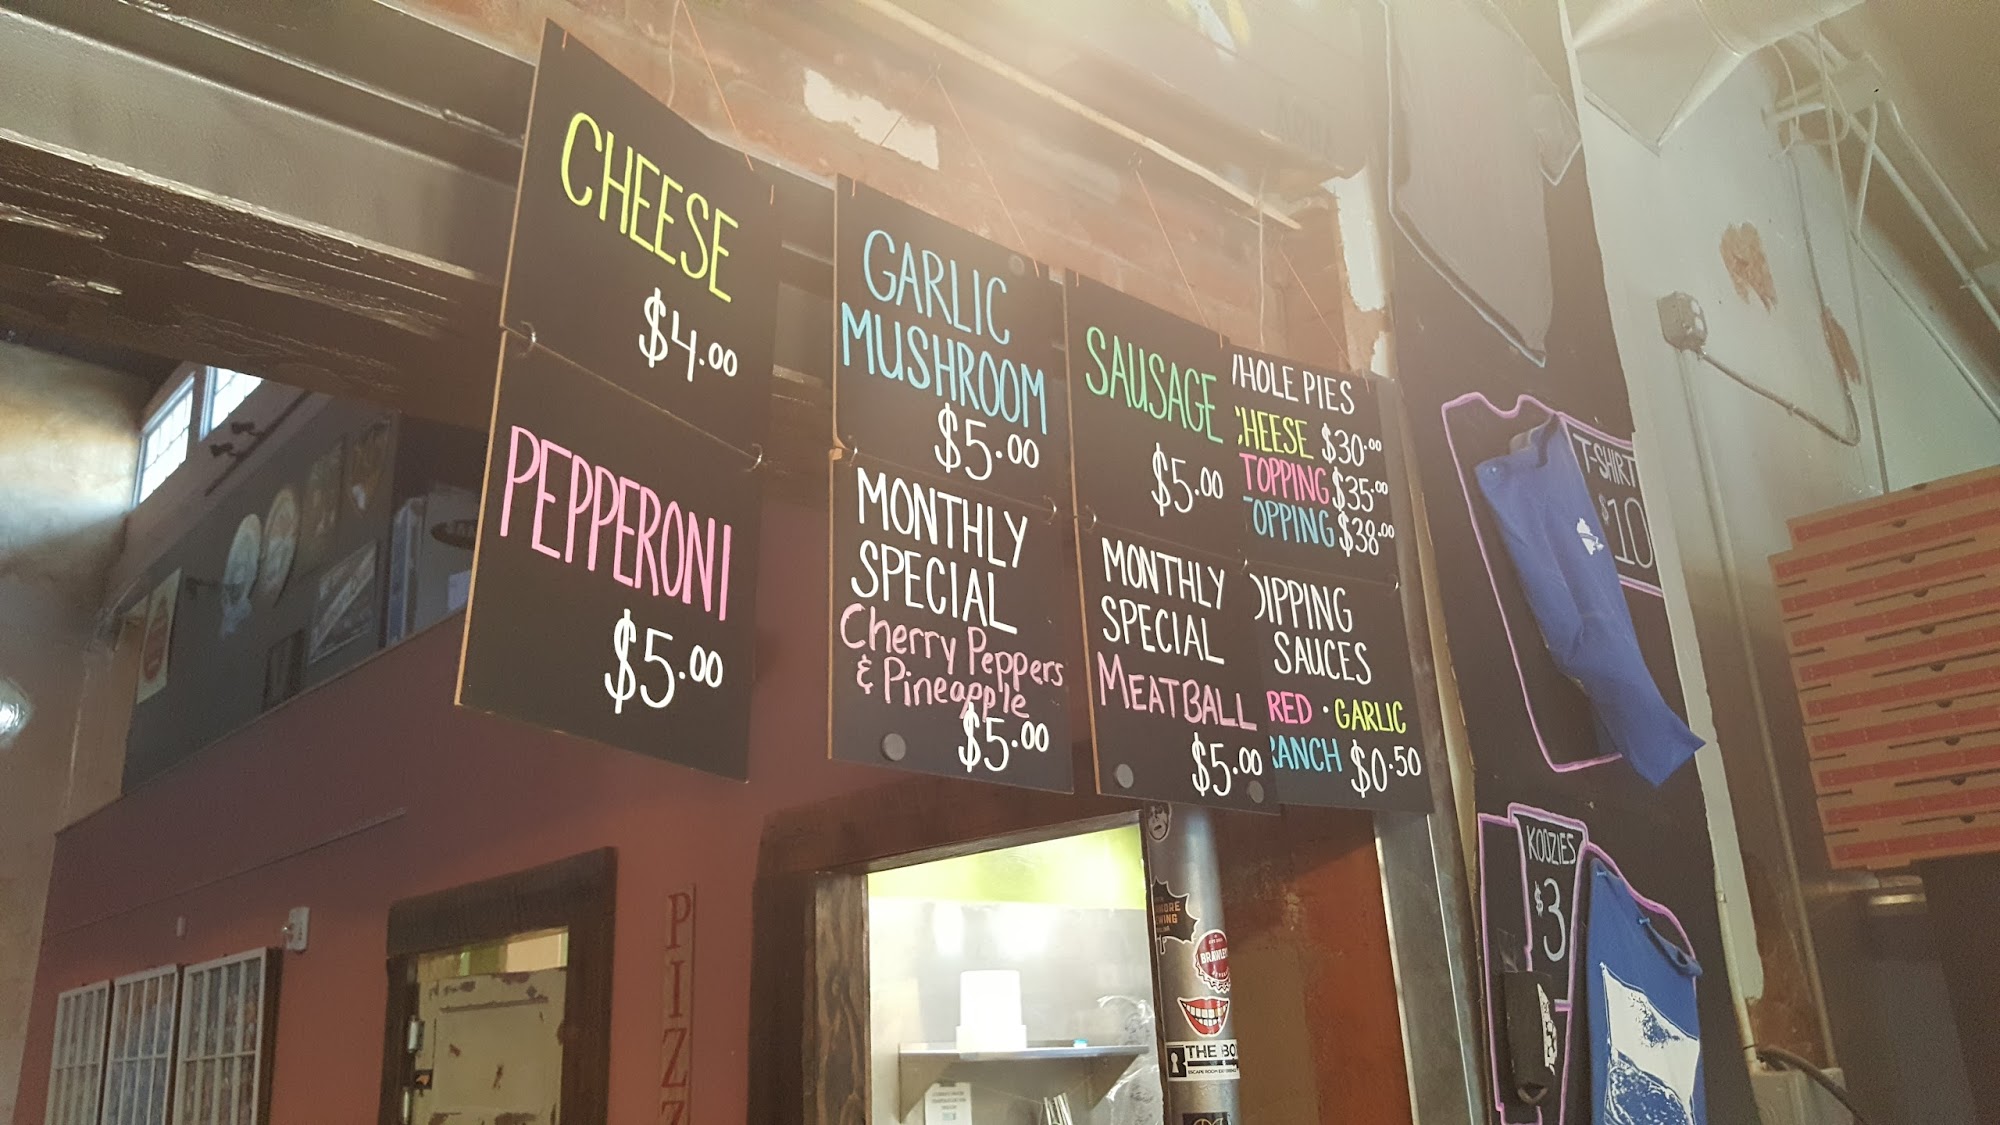 CHEESE
$4.00
PEPPERONI
$5.00
GARLIC
MUSHROOM
$5.00
MONTHLY
SPECIAL
Cherry Peppers
& Pineapple
$5.00
SAUSAGE
$5.00
MONTHLY
SPECIAL
MEATBALL
$5.00
HOLE PIES
HEESE $30.00
TOPPING $35.00
TOPPING $38.00
DIPPING
SAUCES
RED · GARLIC
RANCH $0.50
T-SHIRT
$10
KOOZIES
$3
PIZZ
THE BO
ESCAPE ROOM EXPERIENCE